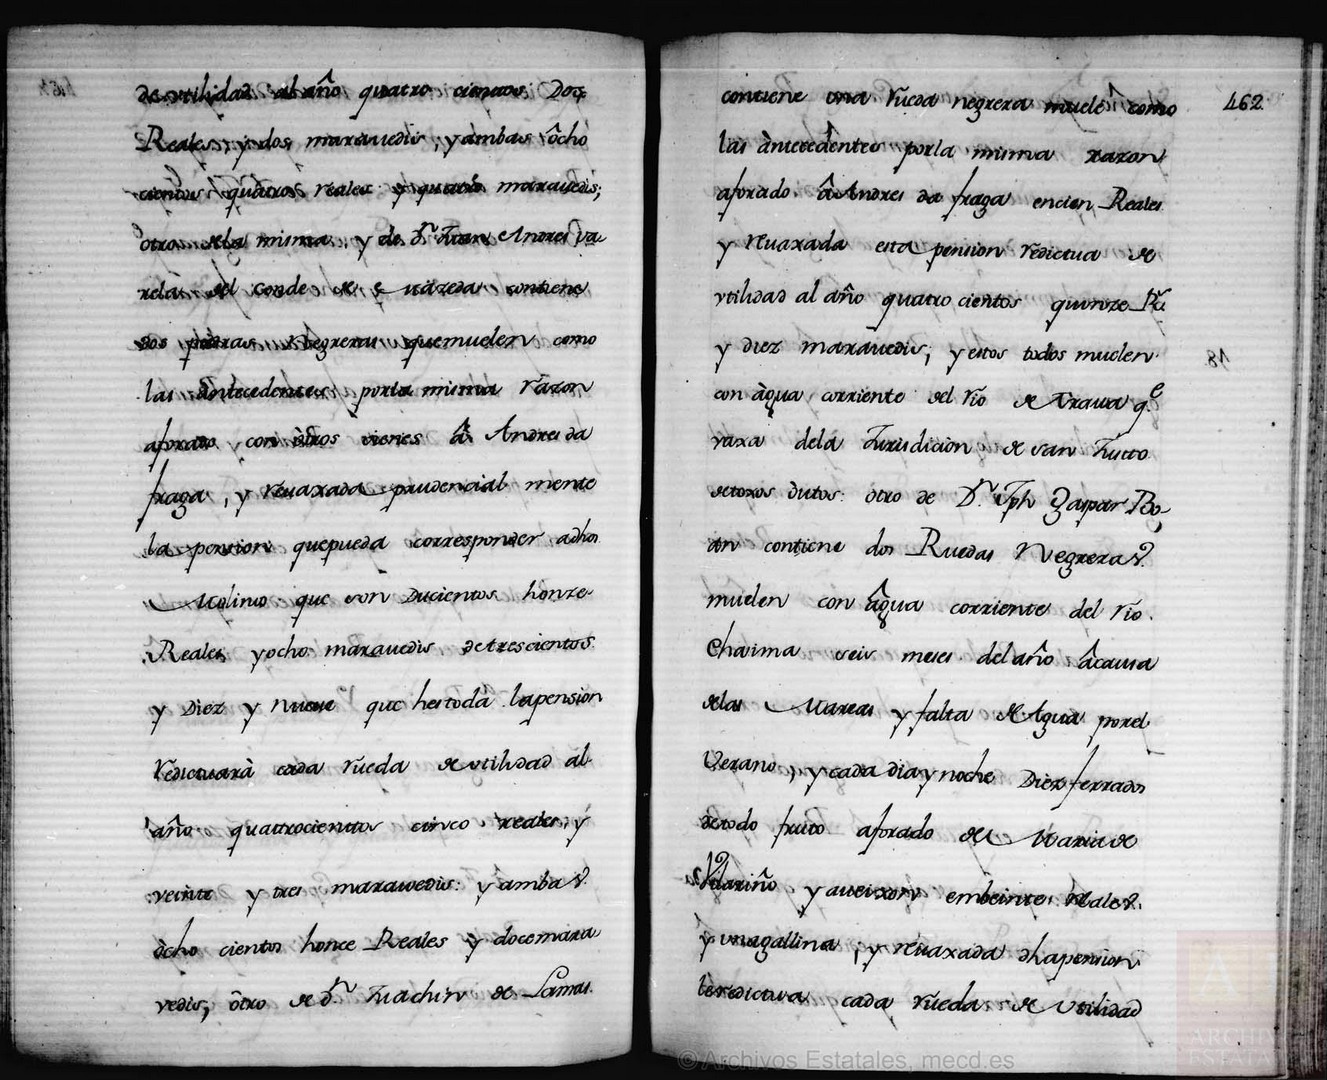 de vtilidad al año quatro cientos Dos
Reales, y dos maravedis, y ambas ôcho
cientos quatro reales y quatro maravedis;
otro dela misma, y de Dn. Juan Andres Va
rela, del conde de contiene
dos piedras Negreras quemuelen como
las Antecedentes, porla misma Razon
aforado con òtros vienes â Andres da
fraga, y revaxada prudencial mente
la pension quepueda corresponder adho
Molino que son Ducientos honze
Reales yocho maravedis de trescientos
y Diez y nueve que hestoda lapension
redictuarà cada rueda de vtilidad al
año quattrocienttos cinco reales, y
veinte y tres maravedis: y ambas
ôcho cientos honce Reales y docemara
vedis; ôtro de Dn. Juachin de Lamas
contiene una rueda negrera muele como
las àntecedentes porla misma razon
aforado â Andres da fraga encien Reales
y revaxada esta pension redictua de
vtilidad al año quatro cientos quinze Rs.
y diez maravedis; y estos todos muelen
con àgua corriente del rio de qe.
vaxa dela Jurisdicion de san Justo
detoxos òutos: otro de Dn. Jph Gaspar Bo,
an contiene dos Ruedas Negreras
muelen con âgua corriente del rio
Chaima seis meses del año âcausa
delas Mareas y falta de Agua porel
Verano, y cada dia y noche Diez ferrados
de todo fruto aforado de Maria de
Vilariño y aveixon embeinte reales,
y vnagallina, y revaxada dhapension
leredictua cada rueda de Vtilidad
462